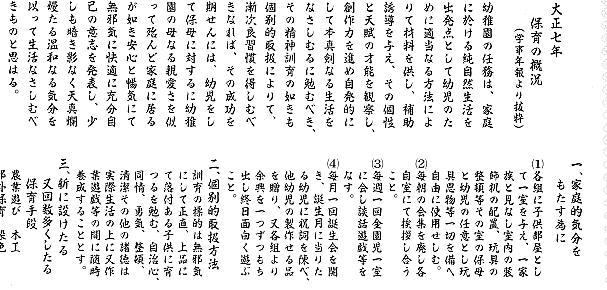 大正七年
保育の概況
（学事年報より抜粋）
幼稚園の任務は、家庭
に於ける純自然生活を
出発点として幼児のた
めに適当なる方法によ
りて材料を供し、補助
誘導を与え、その個性
と天賦の才能を観察し、
創作力を進め自発的に
して本真剣なる生活を
なさしむるに勉むべき、
その精神訓育の如きも
個別的取扱によりて、
漸次良習慣を得しむべ
きなれば、その成功を
期せんには、幼児をし
て保母に対するに幼稚
園の母なる親愛さを似
って殆んど家庭に居る
が如き安心と暢気にて
無邪気に快適に充分自
己の意志を発表し、少
しも暗き影なく天真爛
熳たる温和なる気分を
以って生活なさしむべ
きものと思はる。
一、家庭的気分を
もたす為に
(1)各組に子供部屋とし
て一室を与え、一家
族と見なし室内の装
飾机の配置、玩具の
整頓等その室の保母
と幼児の任意とし玩
具恩物等一切を備へ
自由に使用せしむ。
(2)毎朝の会集を廃し各
自室にて挨拶し合う
こと。
(3)毎週一回全園児一室
に会し談話遊戯等を
なす。
(4)毎月一回誕生会を開
き、誕生月に当りた
る幼児に祝詞を陳べ、
他幼児の製作せる品
を贈り、又各組より
余興を一つずつもち
出し終日面白く遊ぶ
こと。
二、個別的取扱方法
訓育の標的は無邪気
にして正直、上品に
て落付ある子供に育
つるを勉む、自治心、
同情、勇気、整頓、
清潔その他の諸徳は
実際生活の上に又作
業遊戯等の間に随時
養成することとす。
三、新に設けたる
又回数多くしたる
保育手段
農業遊び　木工